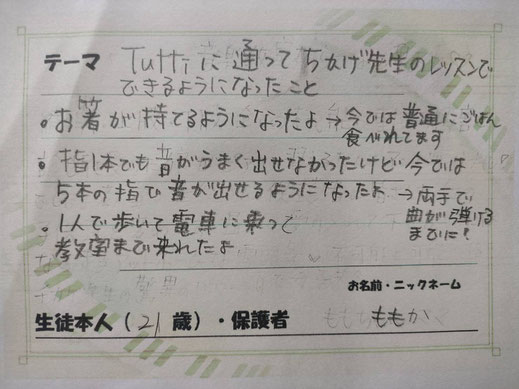 テーマ Tuttiに通ってちかげ先生のレッスンで
できるようになったこと
・お箸が持てるようになったよ→今では普通にごはん
食べれてます
・指1本でも音がうまく出せなかったけど今では
5本の指で音が出せるようになったよ→両手で
曲が弾ける
までに!
・1人で歩いて電車に乗って
教室まで来れたよ
お名前・ニックネーム
生徒本人(21歳)・保護者 ももか